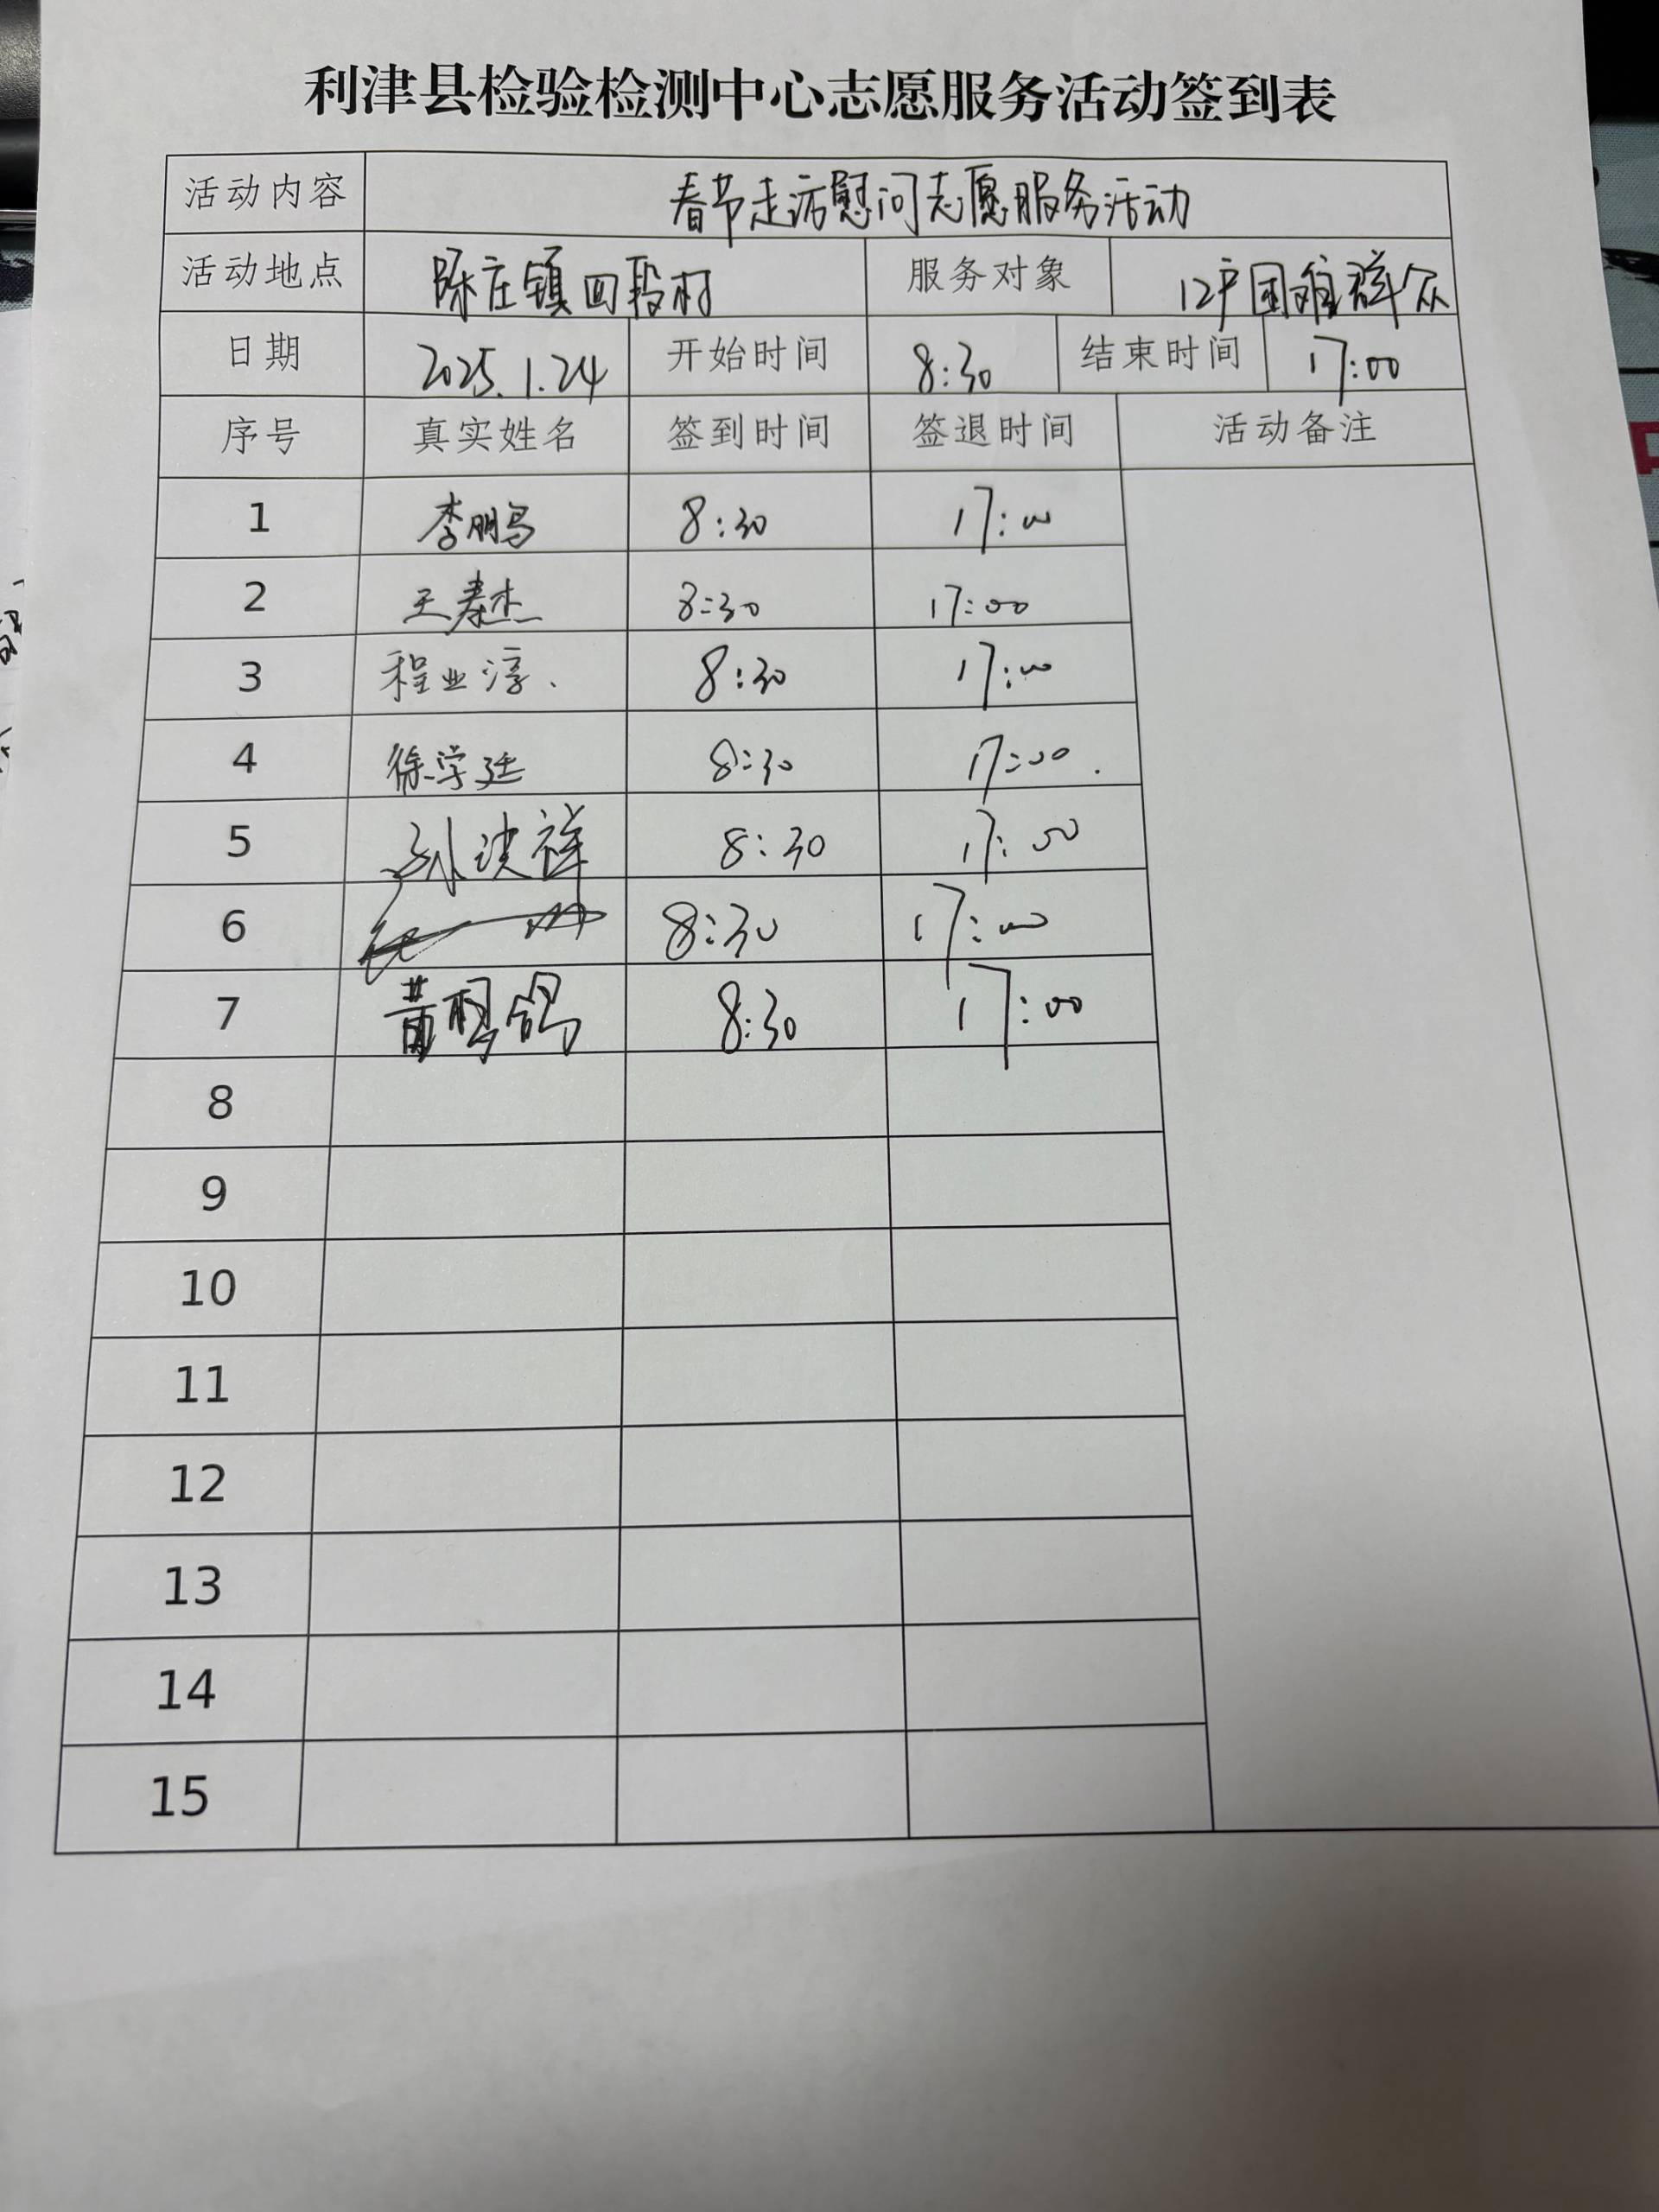 利津县检验检测中心志愿服务活动签到表
活动内容 春节走访慰问志愿服务活动
活动地点 陈庄镇四段村 服务对象 12户困难群众
日期 2025.1.24 开始时间 8:30 结束时间 17:00
序号 真实姓名 签到时间 签退时间 活动备注
1 李鹏 8:30 17:00
2 王寿杰 8:30 17:00
3 程业淳 8:30 17:00
4 徐学廷 8:30 17:00
5 祥 8:30 17:00
6 8:30 17:00
7 黄鹤鸽 8:30 17:00
8
9
10
11
12
13
14
15